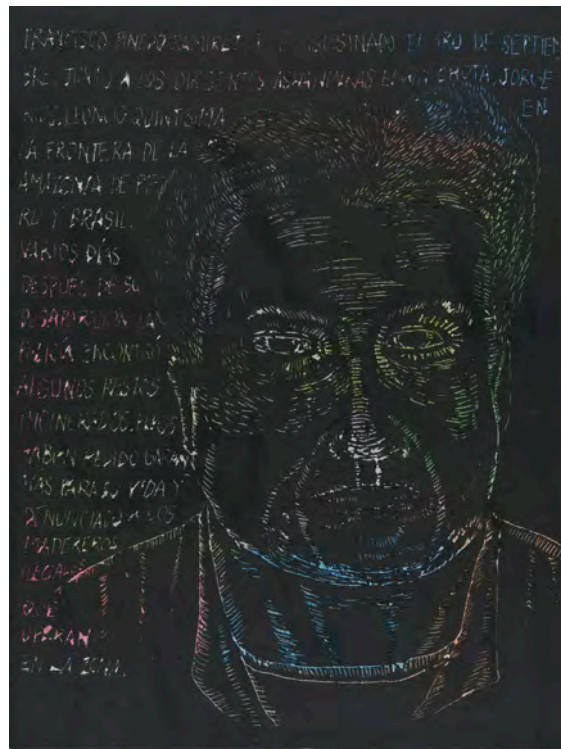 FRANCISCO PINEDO RAMIREZ ASESINADO EL 1RO DE SEPTIEM
BRE JUNTO A LOS DIRIGENTES ASHANINKAS EDWIN CHOTA, JORGE
RIOS, LEONCIO QUINTISIMA EN
LA FRONTERA DE LA
AMAZONIA DE PE
RÚ Y BRASIL.
VARIOS DÍAS
DESPUES DE SU
DESAPARICION LA
POLICÍA ENCONTRÓ
ALGUNOS RESTOS
INCINERADOS. ELLOS
HABIAN PEDIDO GARAN
TIAS PARA SU VIDA Y
DENUNCIADO A LOS
MADEREROS
ILEGALES
QUE
OPERAN
EN LA ZONA.